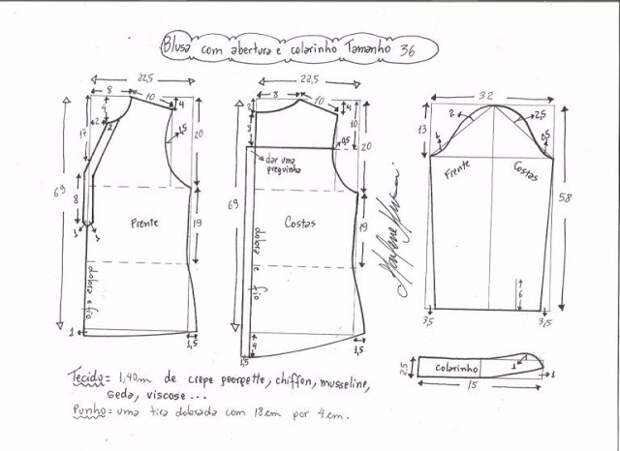 Blusa com abertura e colarinho Tamanho 36
22,5
8
10
4
4
2
2
17
1,5
20
69
8
3
3
Frente
19
dobra e fio
1
1,5
22,5
8
10
2
4
10
0,5
20
dar uma
preguinha
69
Costas
19
dobra e fio
1,5
4
1,5
32
13
2
2,5
1
0,5
Frente
Costas
58
6
3,5
3,5
2,5
colarinho
1
1
15
Tecido = 1,40m de crepe georgette, chiffon, musseline,
seda, viscose ...
Punho = uma tira dobrada com 18cm por 4cm.